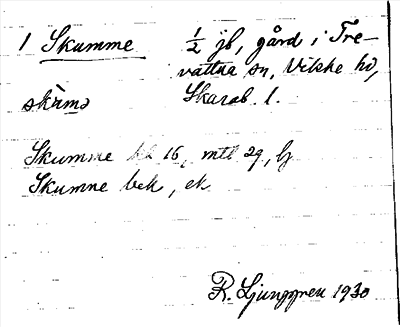 1 Skumme ½ jb, gård i Tre-
vattna sn, Vilske hd,
skùmə Skarab. l.
Skumme 16, mtl 29,
Skumme bek, ek
R. Ljunggren 1930